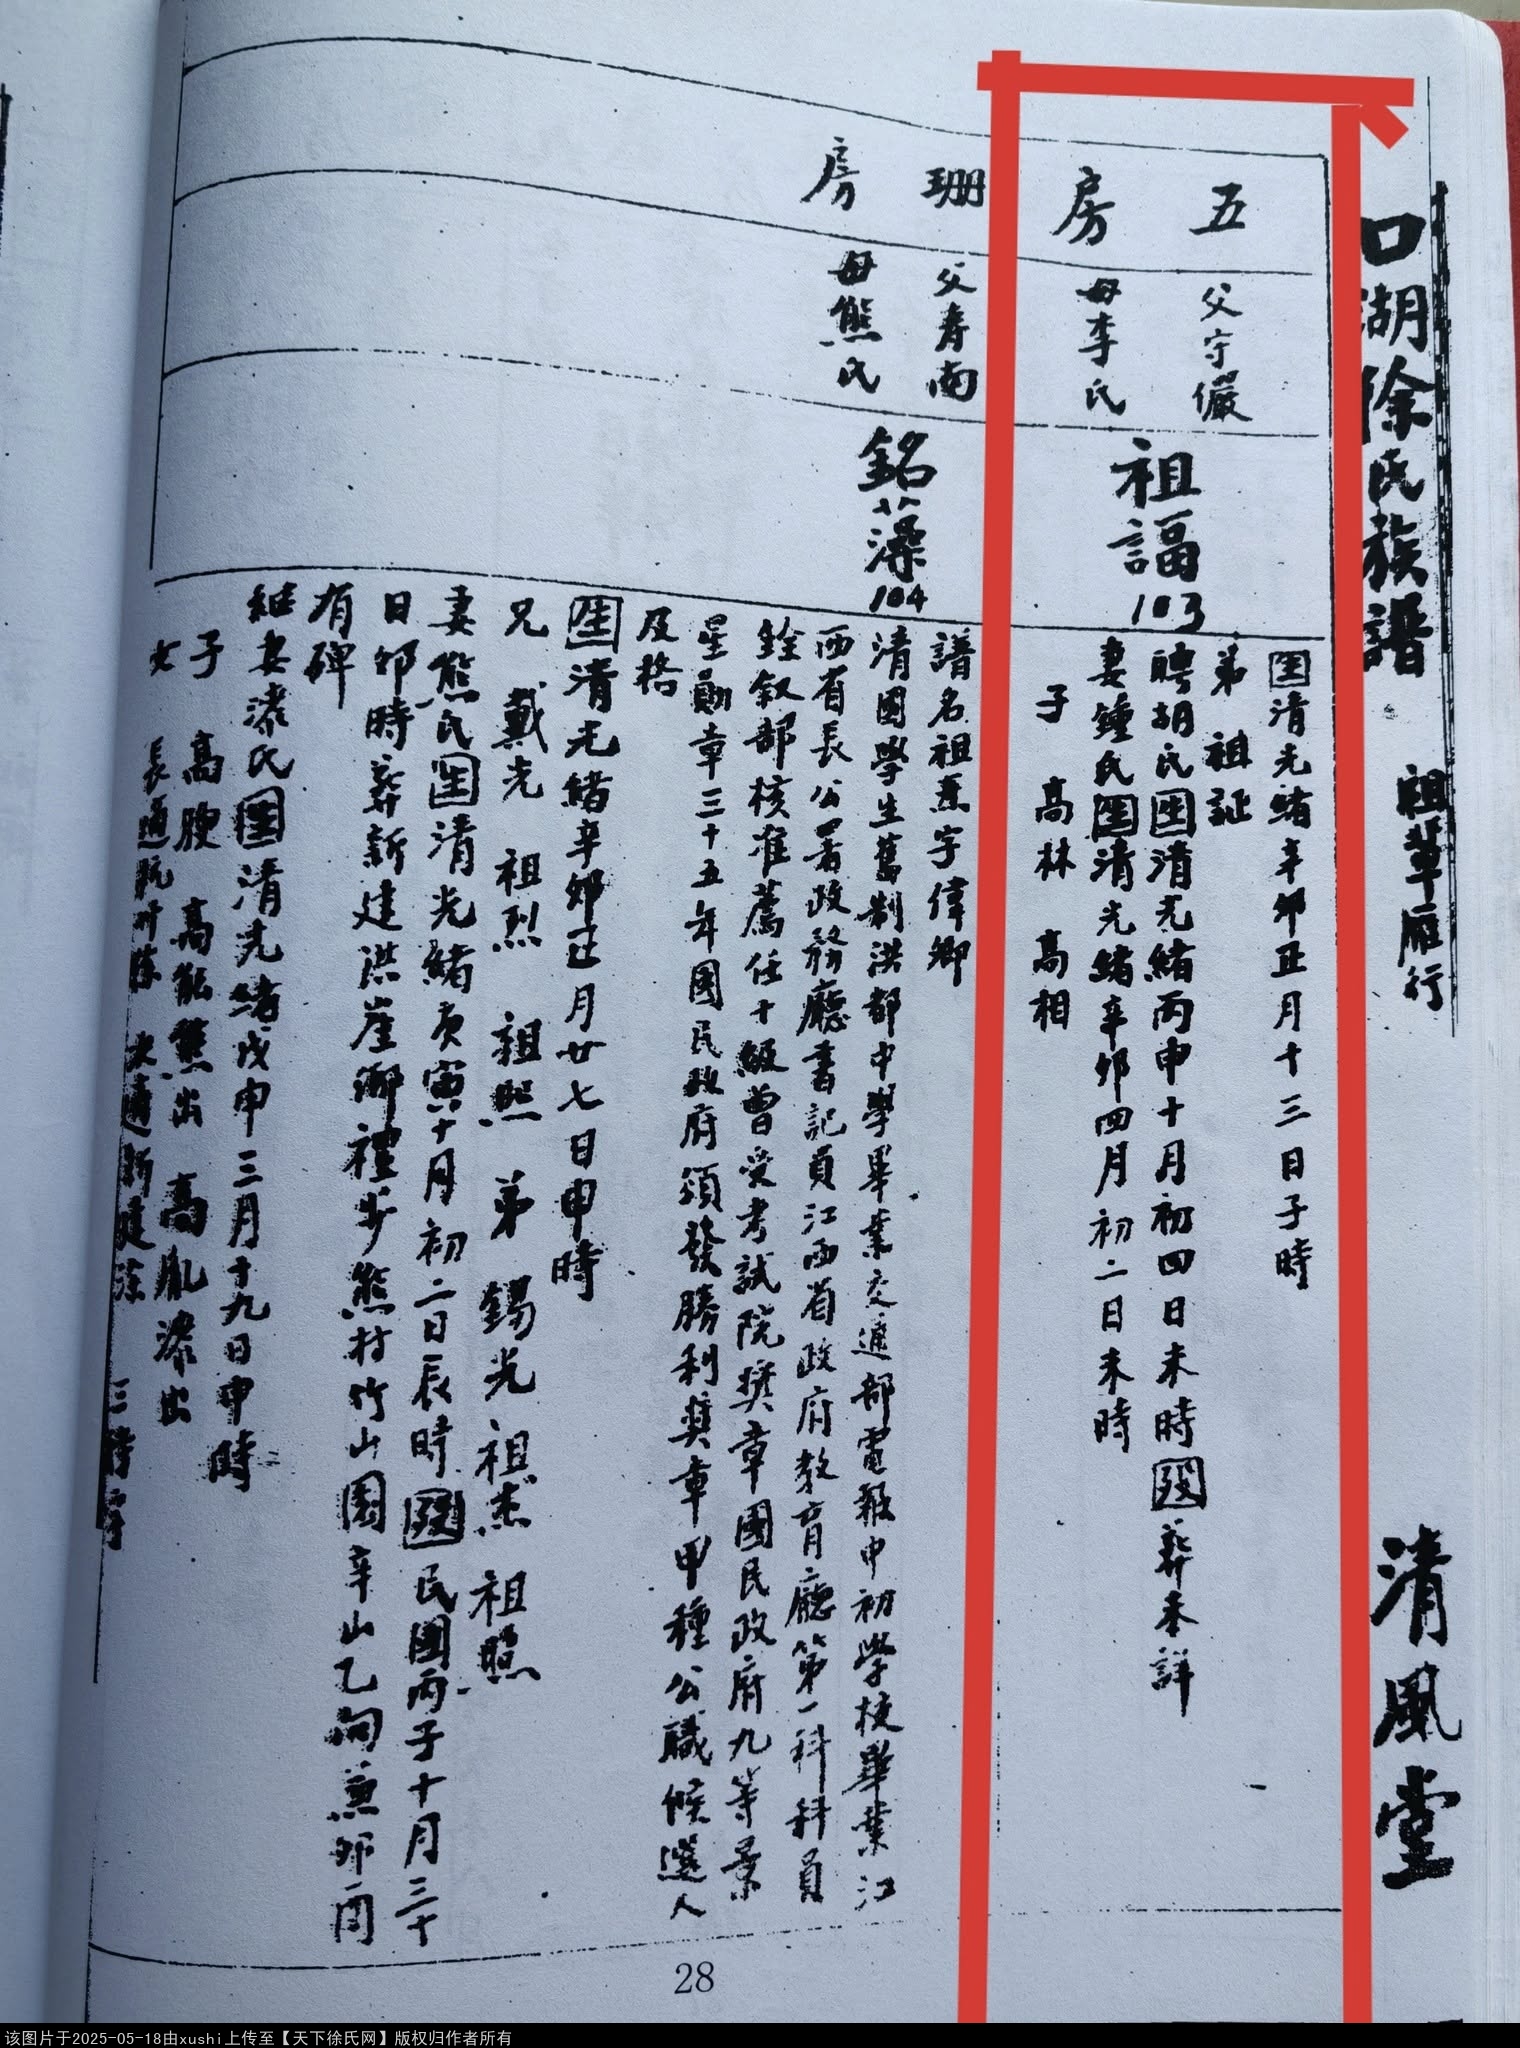 口湖徐氏族譜 祖輩雁行 清風堂
五房
父守儼
母李氏
祖諨
103
生清光緒辛卯正月十三日子時
弟 祖証
聘胡氏生清光緒丙申十月初四日未時歿葬未詳
妻鍾氏生清光緒辛卯四月初二日未時
子 高林 高相
珊房
父寿南
母熊氏
銘藻
104
譜名祖熏字偉卿
清國學生舊制洪都中學畢業交通部電報中初學校畢業江
西省長公署政務廳書記員江西省政府教育廳第一科科員
銓叙部核准薦任十級曾受考試院獎章國民政府九等景
星勳章三十五年國民政府頒發勝利獎章甲種公職候選人
及格
生清光緒辛卯正月廿七日申時
兄 戴光 祖烈 祖熙 弟 錫光 祖杰 祖照
妻熊氏生清光緒庚寅十月初二日辰時歿民國丙子十月三十
日卯時葬新建洪崖鄉禮步熊村竹山園辛山乙向兼卯酉
有碑
繼妻漆氏生清光緒戊申三月十九日申時
子 高腴 高 熊出 高胤漆出
女 長適 次適新建 三待字
28
该图片于2025-05-18由xushi上传至【天下徐氏网】版权归作者所有